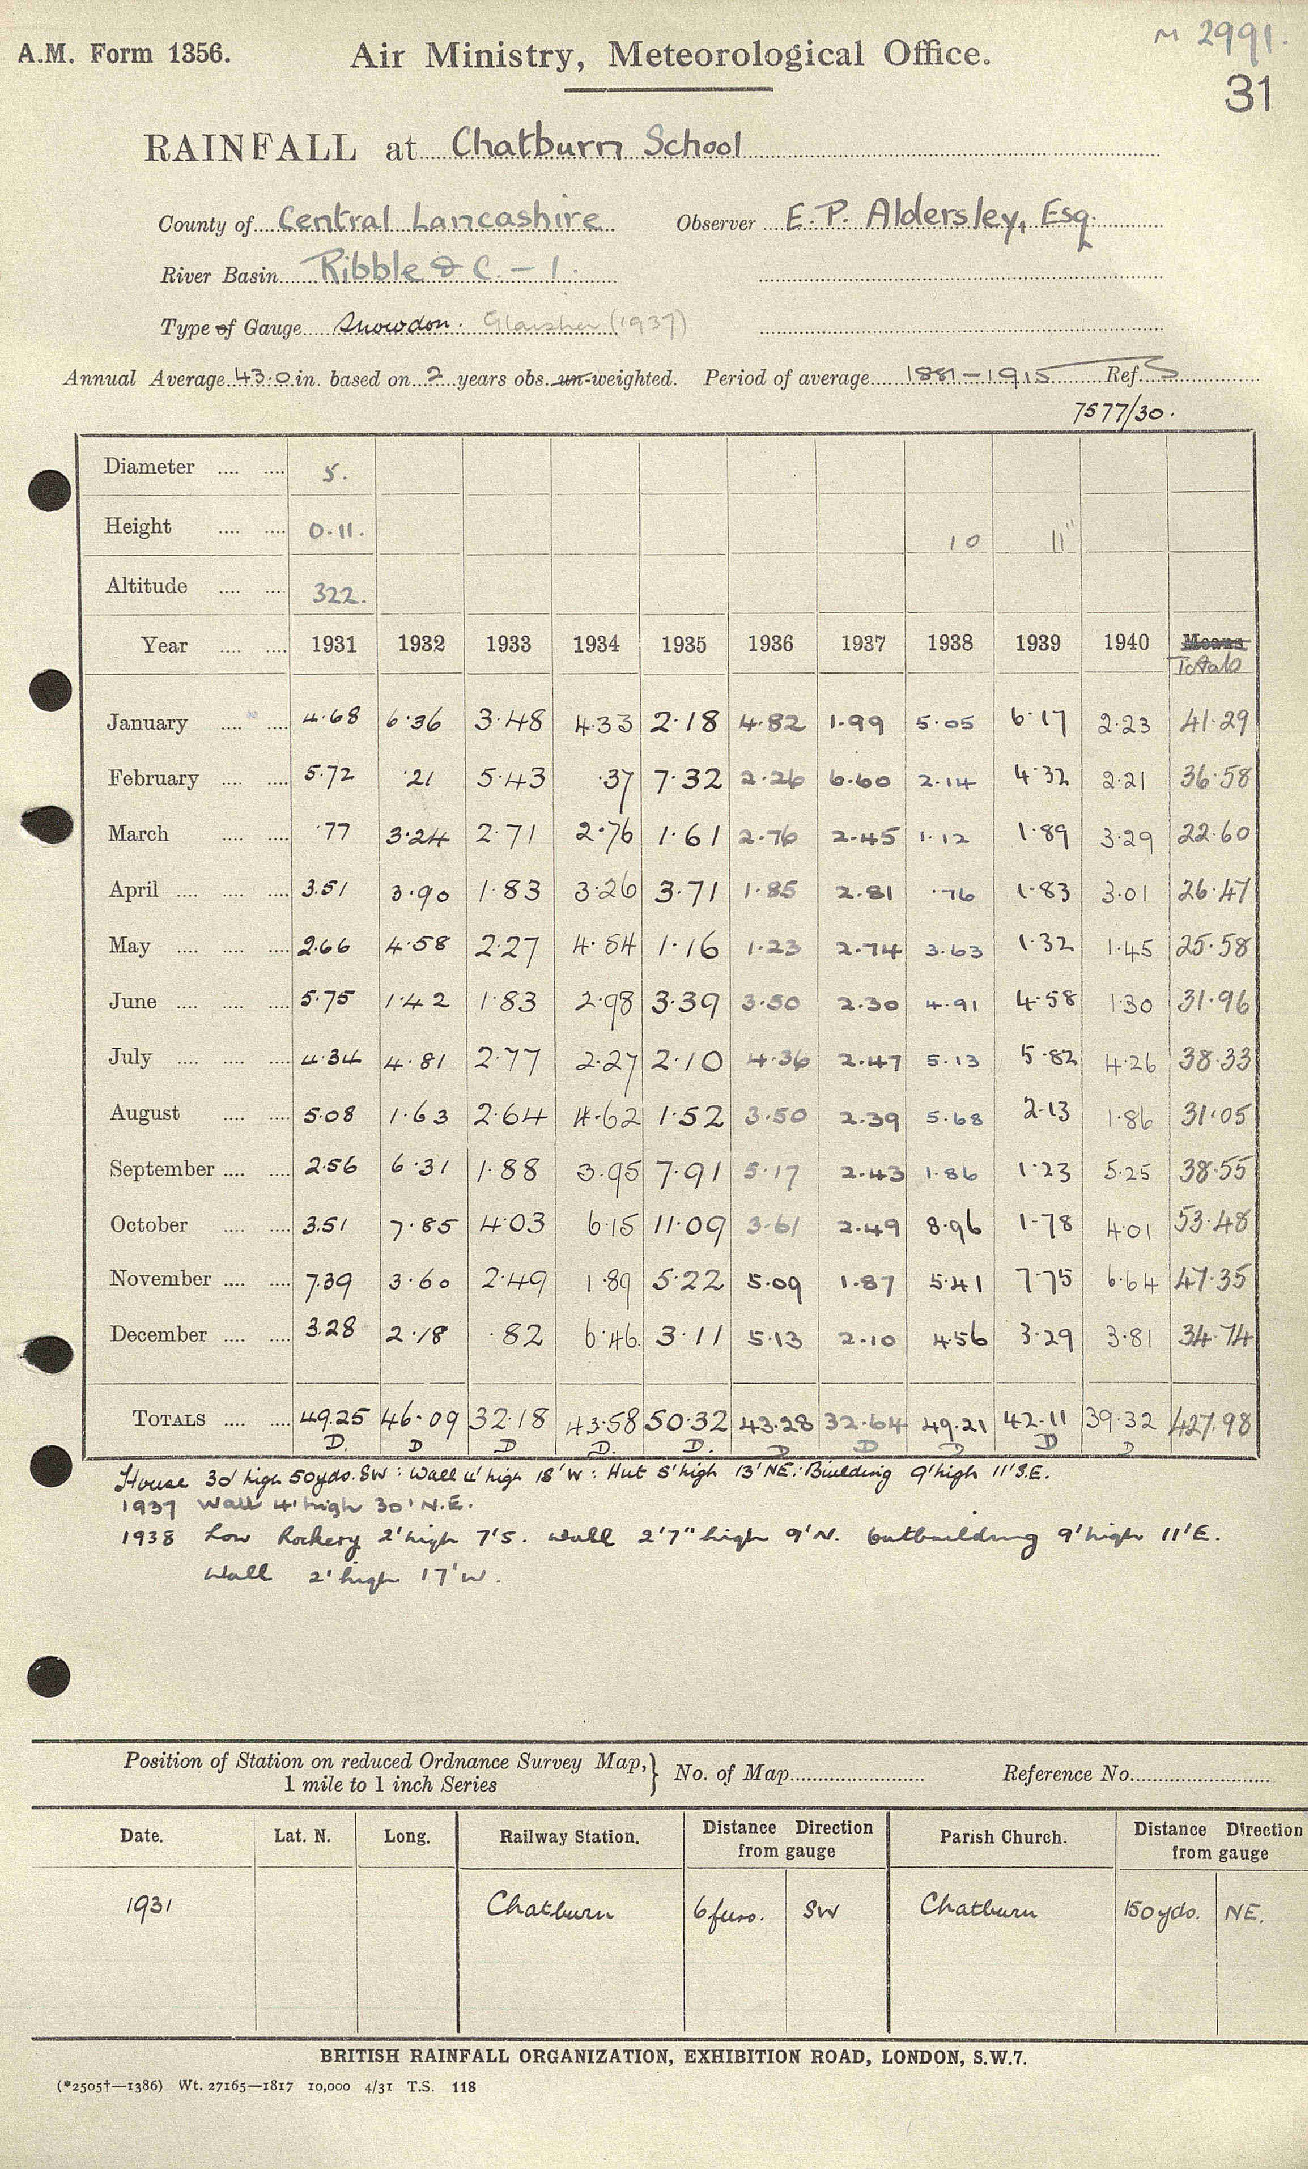 M 2991.
A.M. Form 1356. Air Ministry, Meteorological Office.
31
RAINFALL at Chatburn School
County of Central Lancashire Observer E. P. Aldersley, Esq.
River Basin Ribble & C. - 1.
Type of Gauge Snowdon. Glaisher (1937)
Annual Average 43.0 in. based on 2 years obs. un-weighted. Period of average 1881-1915 Ref. S
7577/30.
Diameter .... .... 5.
Height .... .... 0.11. 10 11"
Altitude .... .... 322.
Year .... .... 1931 1932 1933 1934 1935 1936 1937 1938 1939 1940 Means
Totals
January .... .... 4.68 6.36 3.48 4.33 2.18 4.82 1.99 5.05 6.17 2.23 41.29
February .... .... 5.72 .21 5.43 .37 7.32 2.26 6.60 2.14 4.32 2.21 36.58
March .... .... .77 3.24 2.71 2.76 1.61 2.76 2.45 1.12 1.89 3.29 22.60
April .... .... .... 3.51 3.90 1.83 3.26 3.71 1.85 2.81 .76 1.83 3.01 26.47
May .... .... .... 2.66 4.58 2.27 4.54 1.16 1.23 2.74 3.63 1.32 1.45 25.58
June .... .... .... 5.75 1.42 1.83 2.98 3.39 3.50 2.30 4.91 4.58 1.30 31.96
July .... .... .... 4.34 4.81 2.77 2.27 2.10 4.36 2.47 5.13 5.82 4.26 38.33
August .... .... 5.08 1.63 2.64 4.62 1.52 3.50 2.39 5.68 2.13 1.86 31.05
September .... .... 2.56 6.31 1.88 3.95 7.91 5.17 2.43 1.86 1.23 5.25 38.55
October .... .... 3.51 7.85 4.03 6.15 11.09 3.61 2.49 8.96 1.78 4.01 53.48
November .... .... 7.39 3.60 2.49 1.89 5.22 5.09 1.87 5.41 7.75 6.64 47.35
December .... .... 3.28 2.18 .82 6.46 3.11 5.13 2.10 4.56 3.29 3.81 34.74
TOTALS .... .... 49.25 46.09 32.18 43.58 50.32 43.28 32.64 49.21 42.11 39.32 427.98
D. D D D. D. D D D D D
House 30' high 50yds. SW: Wall 4' high 18' W: Hut 8' high 13' NE: Building 9' high 11' S.E.
1937 Wall 4' high 30' N.E.
1938 Low Rockery 2' high 7' S. Wall 2'7" high 9' N. Outbuilding 9' high 11' E.
Wall 2' high 17' W.
Position of Station on reduced Ordnance Survey Map, 1 mile to 1 inch Series } No. of Map Reference No.
Date. Lat. N. Long. Railway Station. Distance Direction from gauge Parish Church. Distance Direction from gauge
1931 Chatburn 6 furs. SW Chatburn 150 yds. NE.
BRITISH RAINFALL ORGANIZATION, EXHIBITION ROAD, LONDON, S.W.7.
(*2505†—1386) Wt. 27165—1817 10,000 4/31 T.S. 118